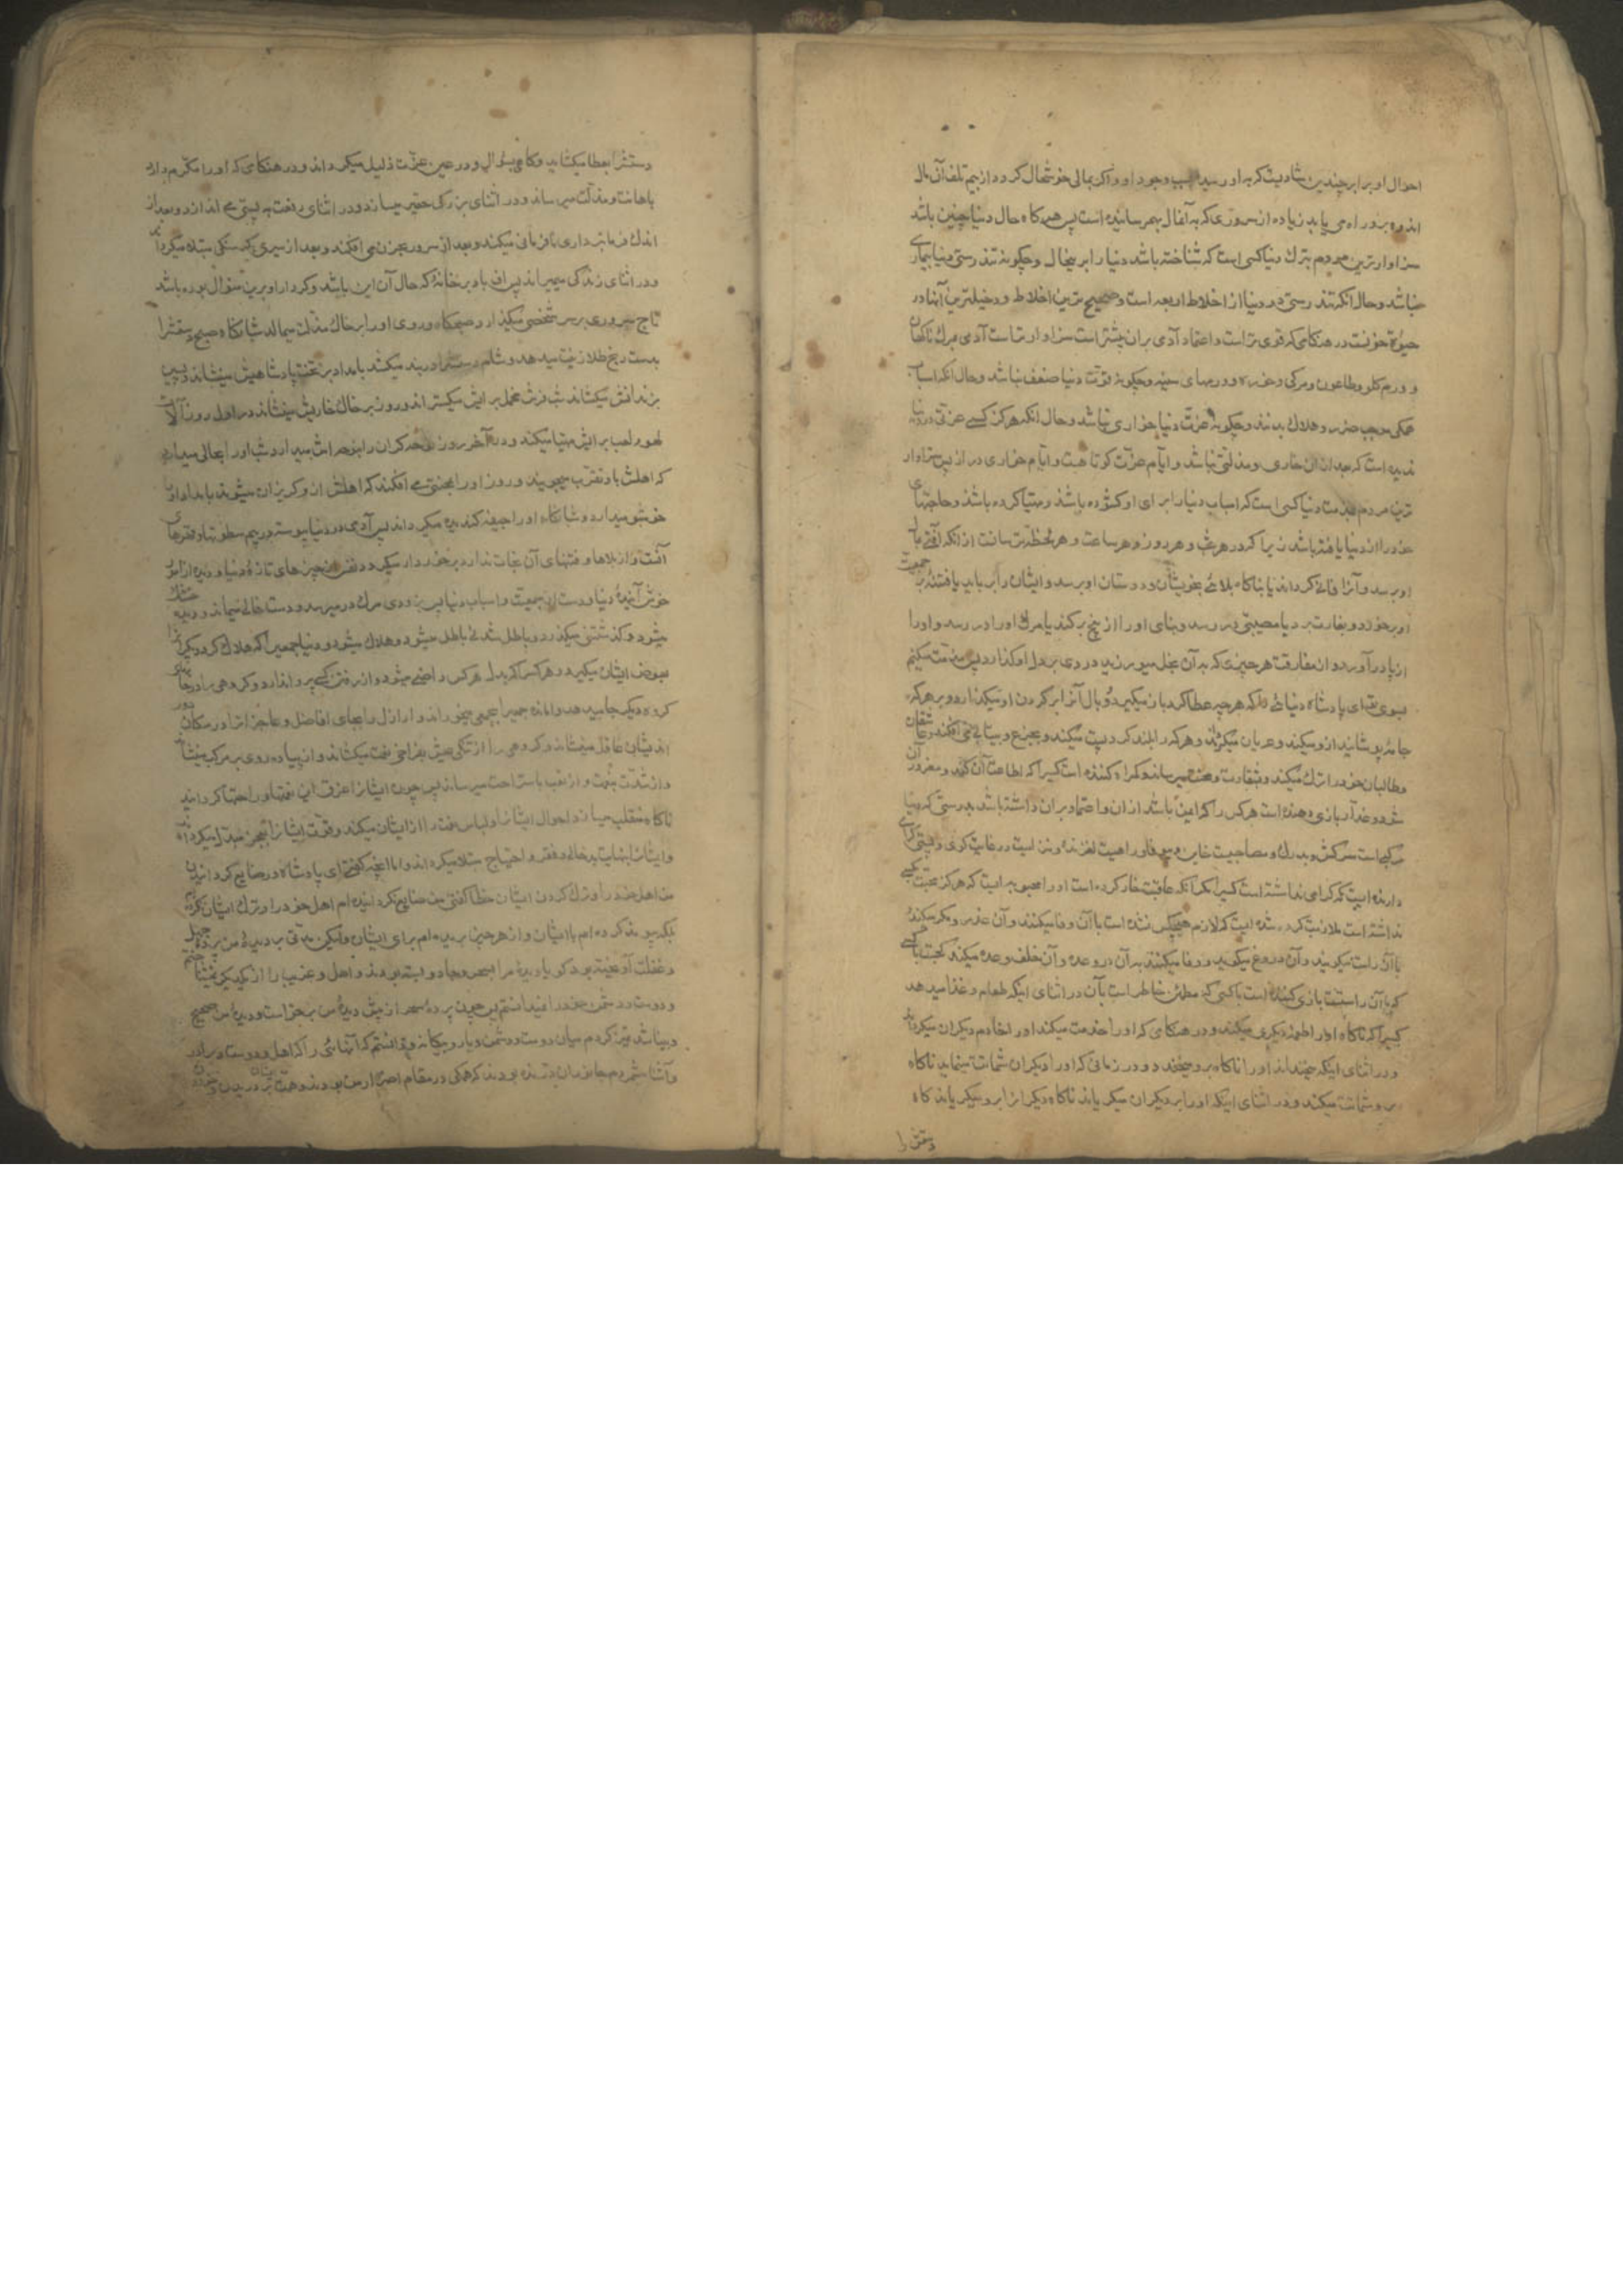 احوال او برابر چندین شادیست که به او رسید بسبب وجود او و اگر بمالی خوشحال گردد از بیم تلف آن مال
اندوه برو راه می یابد زیاده از سروری که به آن مال بهم رسانیده است پس هرگاه حال دنیا چنین باشد
سزاوارترین مردم بترک دنیا کسی است که شناخته باشد دنیا را بر این حال و چگونه تندرستی دنیا بیماری
نباشد و حال آنکه تندرستی در دنیا از اخلاط اربعه است و صحیح ترین اخلاط و دخیلترین آنها در
حیوة خونست در هنگامی که قوی تر است و اعتماد آدمی بر آن بیشتر است سزاوارتر است آدمی بمرگ ناگهان
و ورم گلو و طاعون و و ورمهای سینه و چگونه قوت دنیا ضعف نباشد و حال آنکه اسباب
همگی موجب ضرر و هلاک بدنند و چگونه عزت دنیا خواری نباشد و حال آنکه هرگز کسی عزتی در دنیا
ندیده است که بعد از آن خواری و مذلتی نباشد و ایام عزت کوتاهست و ایام خواری دراز پس سزاوار
ترین مردم بمذمت دنیا کسی است که اسباب دنیا را برای او گشوده باشد و مهیا کرده باشد و حاجتهای
خود را از دنیا یافته باشد زیرا که در هر شب و هر روز و هر ساعت و هر لحظه ترسانست از آنکه آفتی بمال
او برسد و آنرا فانی گرداند یا ناگاه بلائی بخویشان و دوستان او برسد و ایشان را برباید یا فتنه بر جمعیت
او برخورد و بغارت برد یا مصیبتی در رسد و بنای او را از بیخ برکند یا مرگ او را در رسد و او را
از پا درآورد و از مفارقت هر چیزی که به آن بخل میورزید دردی بر دل او گذارد پس مذمت میکنم
بسوی تو ای پادشاه دنیائی را که هر چه عطا کرد باز میگیرد و وبال آنرا بر گردن او میگذارد و بر هر که
جامه پوشانید ازو میکند و عریان میگرداند و هر که را بلند کرد پست میکند و بجزع و بیتابی می افکند و عاشقان
و طالبان خود را ترک میکند و بشقاوت و محنت میرساند و گمراه کننده است کسی را که اطاعت آن کند و مغرور آن
شود و غدار بازی دهنده است هر کس را که ایمن باشد از آن و اعتماد بر آن داشته باشد بدرستی که دنیا
مرکبی است سرکش و بدرگ و مصاحبیست خاین و بیوفا و راهیست لغزنده و
گرامی نداشته است کسی را مگر آنکه عاقبت خوار کرده است او را محبوبه ایست که هرگز محبت بکسی
نداشته است ملازمت کرده شده ایست که لازم هیچکس نشده است با آن وفا میکنند و آن غدر و مکر میکند
با آن راست میگویند و آن دروغ میگوید و وفا میکنند به آن در وعده و آن خلف وعده میکند
که با آن راستست بازی کننده است با کسی که مطمئن خاطر است بآن در اثنای اینکه طعام و غذا میدهد
کسی را که ناگاه او را طعمه دیگری میکند و در هنگامی که او را خدمت میکند او را خادم دیگران میگرداند
و در اثنای اینکه میخنداند او را ناگاه برو میخندد و در زمانی که او را بر دیگران شماتت مینماید ناگاه
برو شماتت میکند و در اثنای اینکه او را بر دیگران میگریاند ناگاه دیگران را برو میگریاند گاه
دستش را
دستش را بعطا میگشاید و گاهی بسؤال و در عین عزت ذلیل میگرداند و در هنگامی که او را مکرم دارد
باهانت و مذلت میرساند و در اثنای بزرگی حقیر میسازد و در اثنای رفعت به پستی می اندازد و بعد از
اندک فرمانبرداری نافرمانی میکند و بعد از سرور بحزن می افکند و بعد از سیری بگرسنگی مبتلا میگرداند
و در اثنای زندگی میمیراند پس اف باد بر خانه که حال آن این باشد و کردار او برین منوال بوده باشد
تاج سروری بر سر شخصی میگذارد صبحگاه و روی او را بر خاک مذلت میمالد شبانگاه صبح دستش را
بدست رنج طلا زینت میدهد و شام دستش را در بند میکشد بامداد بر تخت پادشاهیش مینشاند و پسین
بزندانش میکشاند شب فرش مخمل برایش میگستراند و روز بر خاک خاریش مینشاند در اول روز آلات
لهو و لعب برایش مهیا میکند و در آخر روز نوحه گران را بنوحه اش میدارد شب او را بحالی میدارد
که اهلش باو تقرب میجویند و روز او را بمحنتی می افکند که اهلش ازو گریزان میشوند بامداد او را
خوشبو میدارد و شبانگاه او را جیفه گندیده میگرداند پس آدمی در دنیا پیوسته در بیم سطوتها و قهرهای
آنست و از بلاها و فتنهای آن نجات ندارد برخوردار میگردد نفس از چیزهای تازه دنیا و دیده از امور
خوش آینده دنیا و دست از جمعیت و اسباب دنیا پس بزودی مرگ در میرسد و دست خالی میماند و دیده خشک
میشود و گذشتنی میگذرد و باطل شدنی باطل میشود و هلاک میشود و دنیا جمعی را که هلاک کرد دیگران را
بعوض ایشان میگیرد و هر کس را که بدل هر کس راضی میشود و از رفتن کسی پروا ندارد و گروهی را در جای
گروه دیگر جا میدهد و وامانده جمعی را بجمعی میخوراند و اراذل را بجای افاضل و عاجزان را در مکان
اندیشان عاقل مینشاند و گروهی را از تنگی عیش بفراخی نعمت میکشاند و از پیاده روی بر مرکب مینشاند
و از شدت بنعمت و از تعب باستراحت میرساند پس چون ایشان را غرق این نعمتها و راحتها گردانید
ناگاه منقلب میسازد احوال ایشان را و لباس نعمت را از ایشان میکند و قوت ایشان را بعجز مبدل میگرداند
و ایشان را بنهایت بدحالی و فقر و احتیاج مبتلا میگرداند و اما آنچه گفتی ای پادشاه در ضایع گردانیدن
من اهل خود را و ترک کردن ایشان خطا گفتی من ضایع نگردانیده ام اهل خود را و ترک ایشان نکرده ام
بلکه پیوند کرده ام با ایشان و از هر چیز بریده ام برای ایشان ولیکن مدتی بر دیده من پرده جهل
و غفلت آویخته بود گویا دیده مرا بسحر و جادو بسته بودند و اهل و غریب را از یکدیگر نمیشناختم
و دوست و دشمن خود را نمیدانستم پس چون پرده سحر از پیش دیده من برخواست و دیده من صحیح
و بینا شد تمیز کردم میان دوست و دشمن و یار و بیگانه و دانستم که آنهائی را که اهل و دوست و برادر
و آشنا میشمردم جانوران درنده بودند که همگی در مقام اضرار من بودند و همت ایشان بر دریدن